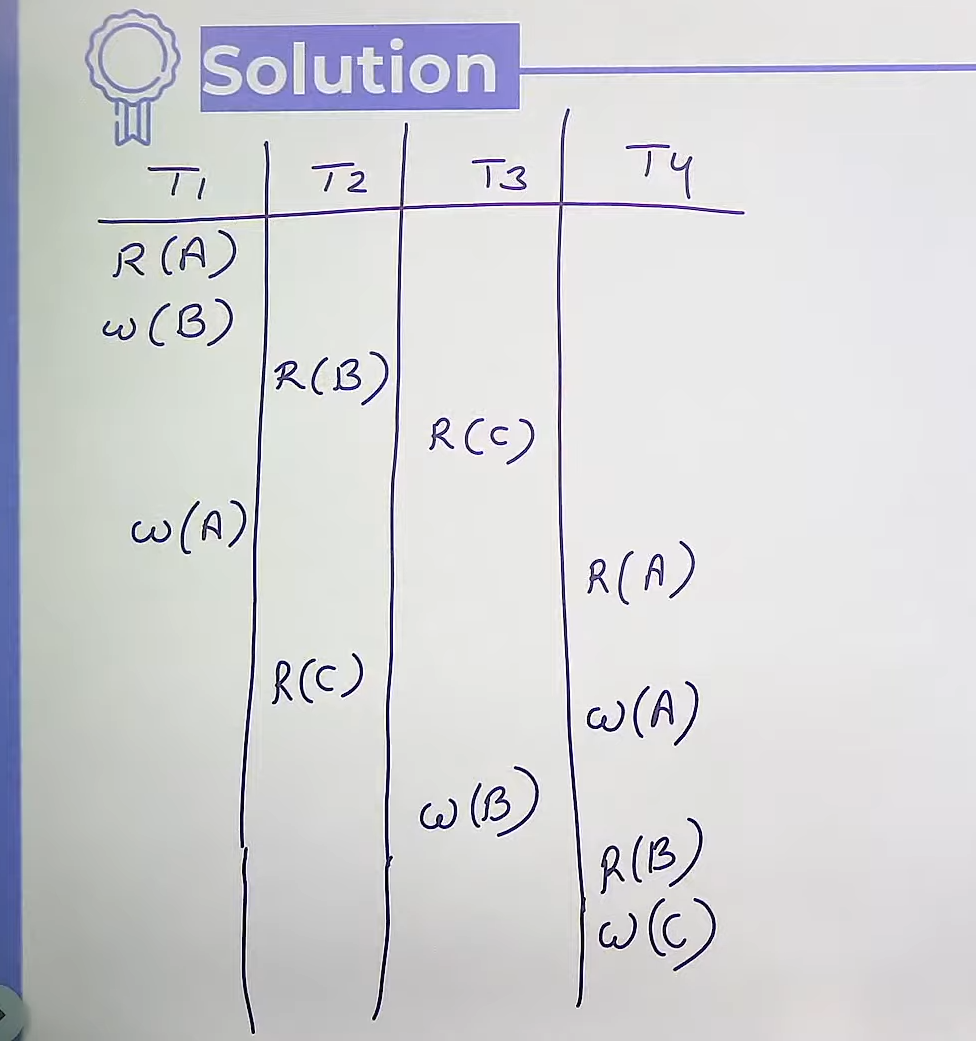 Solution
T1 T2 T3 T4
R(A)
w(B)
R(B)
R(C)
w(A)
R(A)
R(C)
w(A)
w(B)
R(B)
w(C)